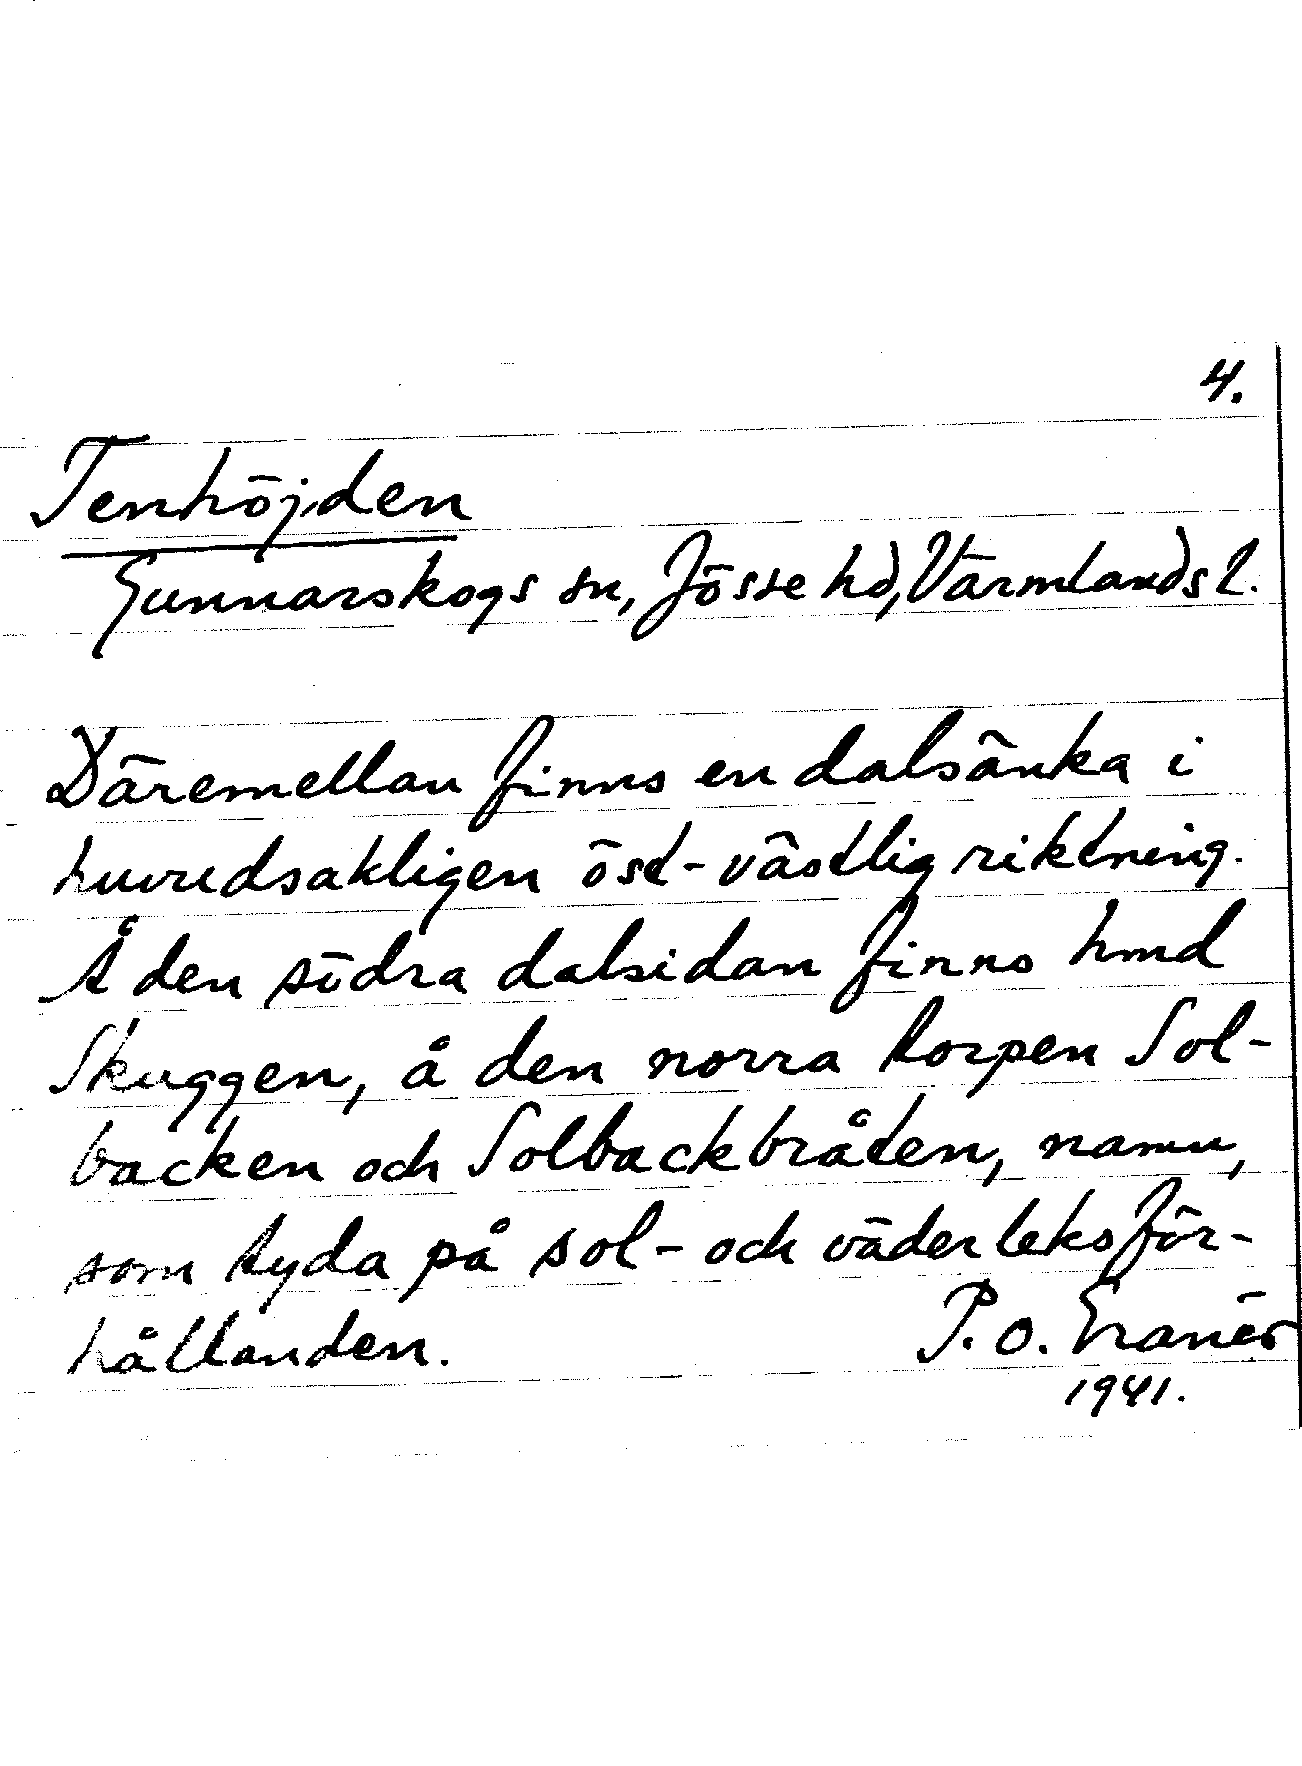 4.
Tenhöjden
Gunnarskogs sn, Jösse hd, Värmlands l.
Däremellan finns en dalsänka i
huvudsakligen öst-västlig riktning.
Å den södra dalsidan finns hmd
Skuggen, å den norra torpen Sol-
backen och Solbackbråten, namn,
som tyda på sol- och väderleksför-
hållanden.
P. O. Granér
1941.